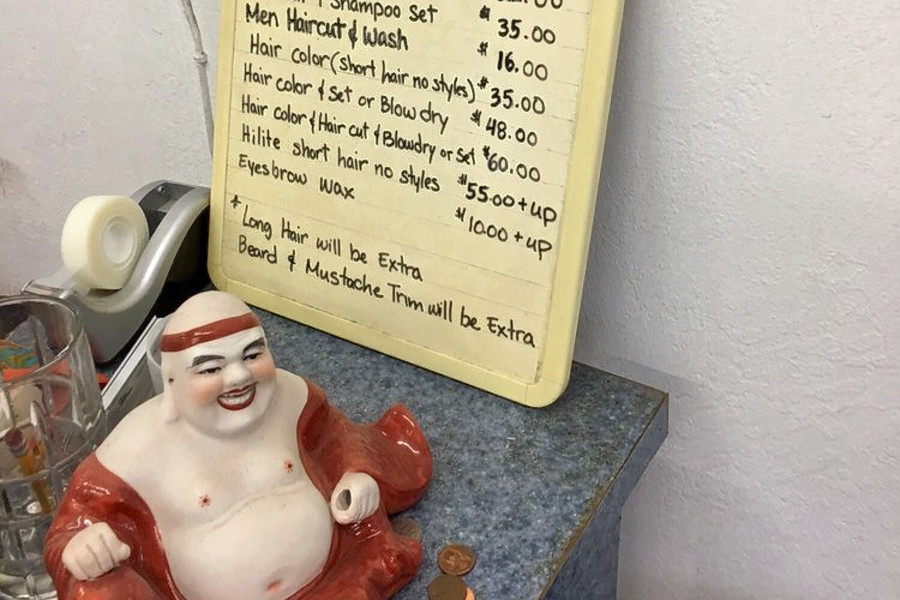 Shampoo Set $35.00
Men Haircut & Wash $16.00
Hair color (short hair no styles) $35.00
Hair color & Set or Blow dry $48.00
Hair color & Hair cut & Blowdry or Set $60.00
Hilite short hair no styles $55.00 + up
Eyesbrow wax $10.00 + up
*Long Hair will be Extra
Beard & Mustache Trim will be Extra